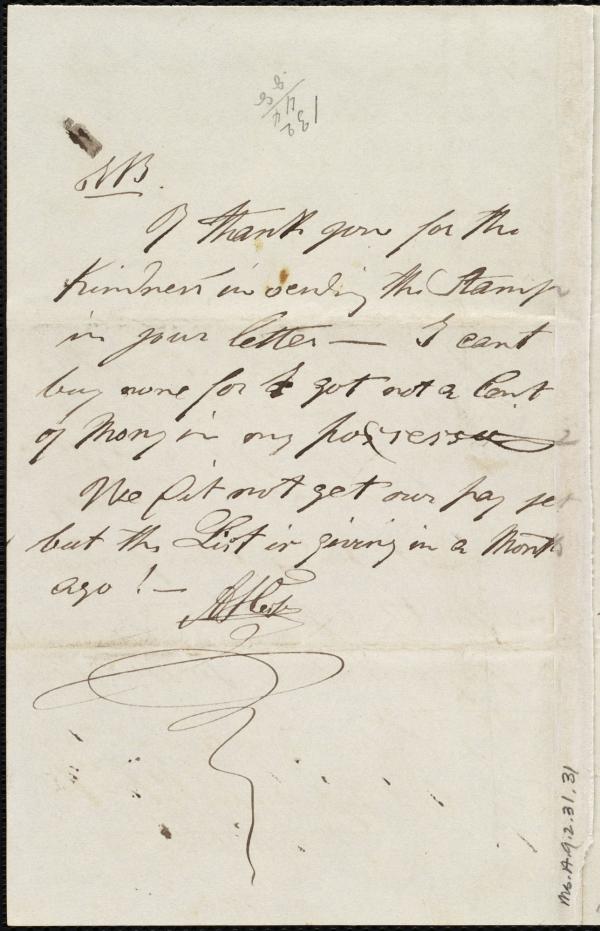 NB.
I thank you for the
Kindness in sending the Stamp
in your letter — I cant
buy none for I got not a Cent
of Mony in my possession
We dit not get our pay yet
but the List is giving in a Month
ago ! —
Ms. A. 9. 2. 31. 31